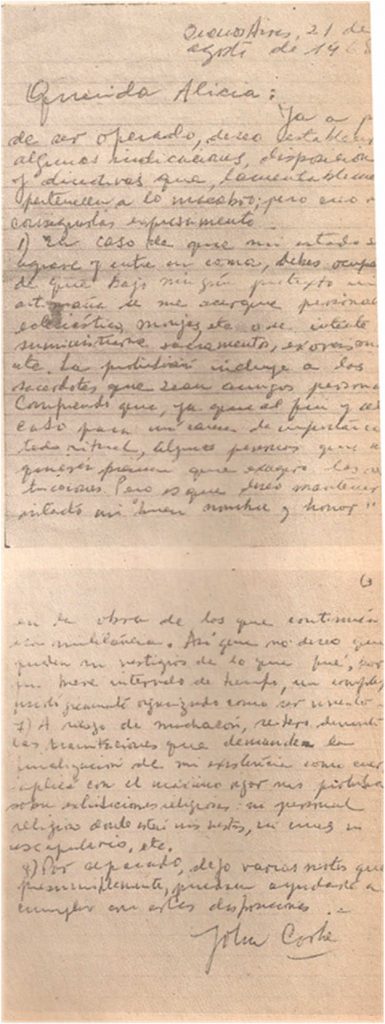 Buenos Aires, 21 de
agosto de 196
Querida Alicia:
Ya a p
de ser operado, deseo establecer
algunas indicaciones, disposicion
y directivas que, lamentableme
pertenecen a lo macabro; pero creo n
consignarlas expresamente.
1) En caso de que mi estado s
agrave y entre en coma, debes ocupa
de que bajo ningún pretexto ni
artimaña se me acerque personal
eclesiástico, monjas, etc. o se intente
suministrarme sacramentos, exorcism
etc. La prohibición incluye a los
sacerdotes que sean amigos persona
Comprendo que, ya que al fin y al
cabo para mí carece de importanc
todo ritual, algunas personas que
quieran piensen que exagero las
tuciones. Pero es que deseo mantener
intacto mi "buen nombre y honor"
en la obra de los que continúen
Así que no deseo que
queden ni vestigios de lo que fué, por
un breve intervalo de tiempo, un complej
organizado como ser viviente.
7) A riesgo de machacón, reitero, durante
las tramitaciones que demanden la
finalización de mi existencia como cuer
aplica con el máximo rigor mis prohibi
sobre exhibiciones religiosas: ni personal
religioso donde estén mis restos, ni cruces ni
escapularios, etc.
8) Por separado, dejo varias notas que
presumiblemente, puedan ayudarte a
cumplir con estas disposiciones.
John Cooke